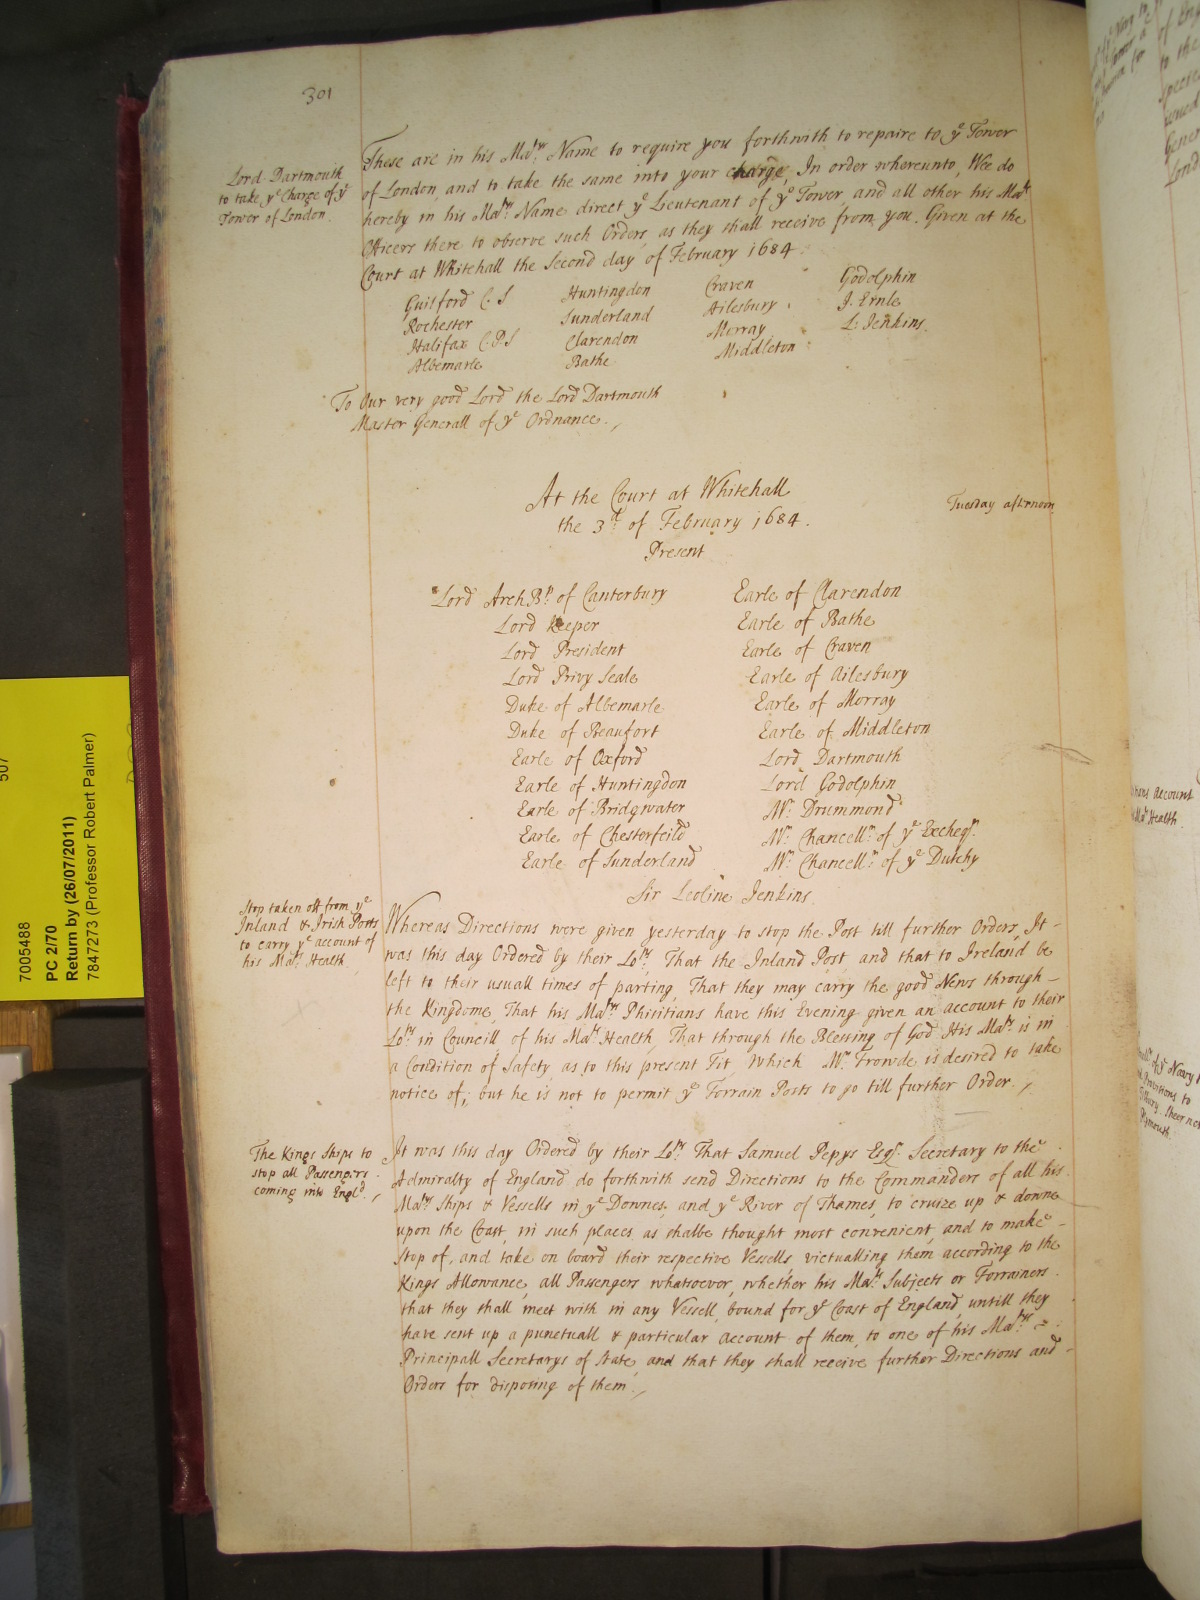 301
Lord Dartmouth
to take yᵉ Charge of yᵉ
Tower of London.
These are in his Maᵗⁱᵉˢ Name to require you forthwith to repaire to yᵉ Tower
of London, and to take the same into your charge, In order whereunto, Wee do
hereby in his Maᵗⁱᵉˢ Name direct yᵉ Lieutenant of yᵉ Tower, and all other his Maᵗˢ
Officers there to observe such Orders as they shall receive from you. Given at the
Court at Whitehall the Second day of February 1684.
Guilford C. S Huntingdon Craven Godolphin
Rochester Sunderland Ailesbury J. Ernle
Halifax C.P.S Clarendon Morray L: Jenkins.
Albemarle Bathe Middleton
To Our very good Lord the Lord Dartmouth
Master Generall of yᵉ Ordnance.,
At the Court at Whitehall
the 3ᵈ of February 1684.
Tuesday afternoon
Present
Lord ArchBᵖ of Canterbury Earle of Clarendon
Lord Keeper Earle of Bathe
Lord President Earle of Craven
Lord Privy Seale Earle of Ailesbury
Duke of Albemarle Earle of Morray
Duke of Beaufort Earle of Middleton
Earle of Oxford Lord Dartmouth
Earle of Huntingdon Lord Godolphin
Earle of Bridgwater Mʳ Drummond
Earle of Chesterfeild Mʳ Chancellʳ of yᵉ Excheqʳ
Earle of Sunderland Mʳ Chancellʳ of yᵉ Dutchy
Sir Leoline Jenkins.
Stop taken off from yᵉ
Inland & Irish Posts
to carry yᵉ account of
his Maᵗˢ Health
Whereas Directions were given yesterday to stop the Post till further Orders, It
was this day Ordered by their Loᵖˢ, That the Inland Post, and that to Ireland be
left to their usuall times of parting, That they may carry the good News through
the Kingdome, That his Maᵗⁱᵉˢ Phisitians have this Evening given an account to their
Loᵖˢ in Councill of his Maᵗˢ Health, That through the Blessing of God His Maᵗⁱᵉ is in
a Condition of Safety, as to this present Fit, Which Mʳ Frowde is desired to take
notice of, but he is not to permit yᵉ Forrain Posts to go till further Order.,
The Kings Ships to
stop all Passengers
coming into Englᵈ.,
It was this day Ordered by their Loᵖˢ That Samuel Pepys Esqʳ Secretary to the
Admiralty of England do forthwith send Directions to the Commanders of all his
Maᵗˢ Ships & Vessells in yᵉ Downes, and yᵉ River of Thames, to cruize up & downe
upon the Coast, in such places as shalbe thought most convenient, and to make
stop of, and take on board their respective Vessells, victualling them according to the
Kings Allowance, all Passengers whatsoever, whether his Maᵗˢ Subjects or Forrainers
that they shall meet with in any Vessell, bound for yᵉ Coast of England, untill they
have sent up a punctuall & particular account of them, to one of his Maᵗⁱᵉˢ
Principall Secretarys of State, and that they shall receive further Directions and
Orders for disposing of them.,
507
7005488
PC 2/70
Return by (26/07/2011)
7847273 (Professor Robert Palmer)